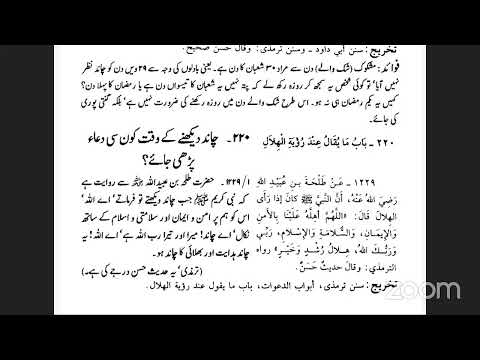 تخريج: سنن أبي داود - وسنن ترمذي: وقال حسن صحيح.
فوائد: مشکوک (شک والے) دن سے مراد ۳۰ شعبان کا دن ہے۔ یعنی بادلوں کی وجہ سے ۲۹ ویں دن کو چاند نظر
نہیں آیا' تو کوئی شخص یہ سمجھ کر روزہ رکھ لے کہ پتہ نہیں یہ شعبان کا تیسواں دن ہے یا رمضان کا پہلا دن؟
کہیں یہ یکم رمضان ہی نہ ہو۔ اس طرح شک والے دن میں روزہ رکھنے کی ضرورت نہیں ہے' بلکہ گنتی پوری
کی جائے۔
٢٢٠- بَابُ مَا يُقَالُ عِنْدَ رُؤْيَةِ الْهِلَالِ
۲۲۰۔ چاند دیکھنے کے وقت کون سی دعاء
پڑھی جائے؟
١٢٢٩ - عَنْ طَلْحَةَ بنِ عُبَيْدِ اللهِ
رَضِيَ اللهُ عَنْهُ، أَنَّ النَّبِيَّ ﷺ كَانَ إِذَا رَأَى
الهِلَالَ قَالَ: «اللَّهُمَّ أَهِلَّهُ عَلَيْنَا بِالأَمْنِ
وَالإِيمَانِ، وَالسَّلَامَةِ وَالإِسْلَامِ، رَبِّي
وَرَبُّكَ اللهُ، هِلَالُ رُشْدٍ وَخَيْرٍ» رواه
الترمذي: وقال حديثٌ حَسَنٌ.
۱/ ۱۲۲۹۔ حضرت طلحہ بن عبید اللہ ﷜ سے روایت ہے
کہ نبی کریم ﷺ جب چاند دیکھتے تو فرماتے' اے اللہ'
اس کو ہم پر امن و ایمان اور سلامتی و اسلام کے ساتھ
نکال' اے چاند! میرا اور تیرا رب اللہ ہے' اے اللہ! یہ
چاند ہدایت اور بھلائی کا چاند ہو۔
(ترمذی' یہ حدیث حسن درجے کی ہے۔)
تخريج: سنن ترمذي، أبواب الدعوات، باب ما يقول عند رؤية الهلال.
zoom